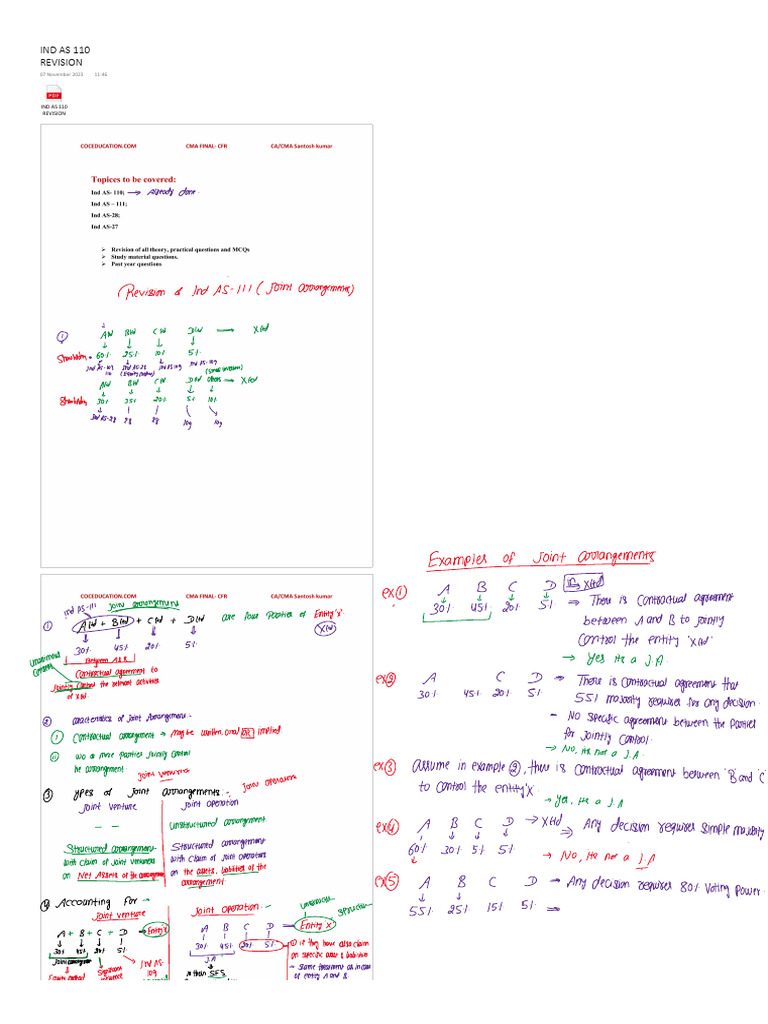 IND AS 110
REVISION
07 November 2023 11:46
IND AS 110
REVISION
COCEDUCATION.COM CMA FINAL- CFR CA/CMA Santosh kumar
Topices to be covered:
Ind AS- 110; → Already done
Ind AS – 111;
Ind AS-28;
Ind AS-27
➢ Revision of all theory, practical questions and MCQs
➢ Study material questions.
➢ Past year questions
Revision of Ind AS-111 (Joint arrangements)
① A ltd B ltd C ltd D ltd → X ltd
60% 25% 10% 5%
Ind AS-28 Ind AS 109 Ind AS-109
A ltd B ltd C ltd D ltd others → X ltd
30% 35% 20% 5% 10%
Ind AS-28 28 28 109 109
COCEDUCATION.COM CMA FINAL- CFR CA/CMA Santosh kumar
Ind AS-111 Joint arrangement
① A ltd + B ltd + C ltd + D ltd are four Parties of Entity 'X'
X ltd
30% 45% 20% 5%
Between A & B
Unanimous Consent
Contractual agreement to
Jointly Control the relevant activities
of X ltd
② caracteristics of Joint Arrangement:-
① Contractual arrangement → May be written, oral OR implied
② two or more parties Jointly Control
the arrangement
Joint Venturers
③ ypes of Joint arrangements:- Joint operators
Joint venture Joint operation
— — Unstructured arrangement
Structured arrangement
with claim of Joint venturers
on Net Assets of the arrangement
Structured arrangement
with claim of Joint operators
on the assets, liabilities of the
arrangement
④ Accounting For →
Joint venture Joint operation:-
A + B + C + D → Entity X
30% 45% 20% 5%
Joint arrangement
Equity method
Significant
Ind AS-
109
A B C D → Entity X
30% 45% 20% 5%
J.A
In their SFS
① if they have also claim
on specific assets & liabilities
- Same treatment as in case
of entity A and B
Examples of Joint arrangements
ex① A B C D in X ltd
30% 45% 20% 5% ⇒ There is contractual agreement
between A and B to jointly
Control the entity 'X ltd'
→ Yes its a J.A
ex② A C D ⇒ There is contractual agreement that
30% 45% 20% 5% 55% majority requires for any decision.
- No specific agreement between the Parties
for Jointly Control.
→ No, its not a J.A
ex③ Assume in example ②, there is contractual agreement between 'B' and 'C'
to control the entity 'X'.
→ Yes, its a J.A
ex④ A B C D → X ltd
60% 30% 5% 5% ⇒ Any decision requires simple majority
→ No, its not a J.A
ex⑤ A B C D → Any decision requires 80% Voting Power.
55% 25% 15% 5% ⇒